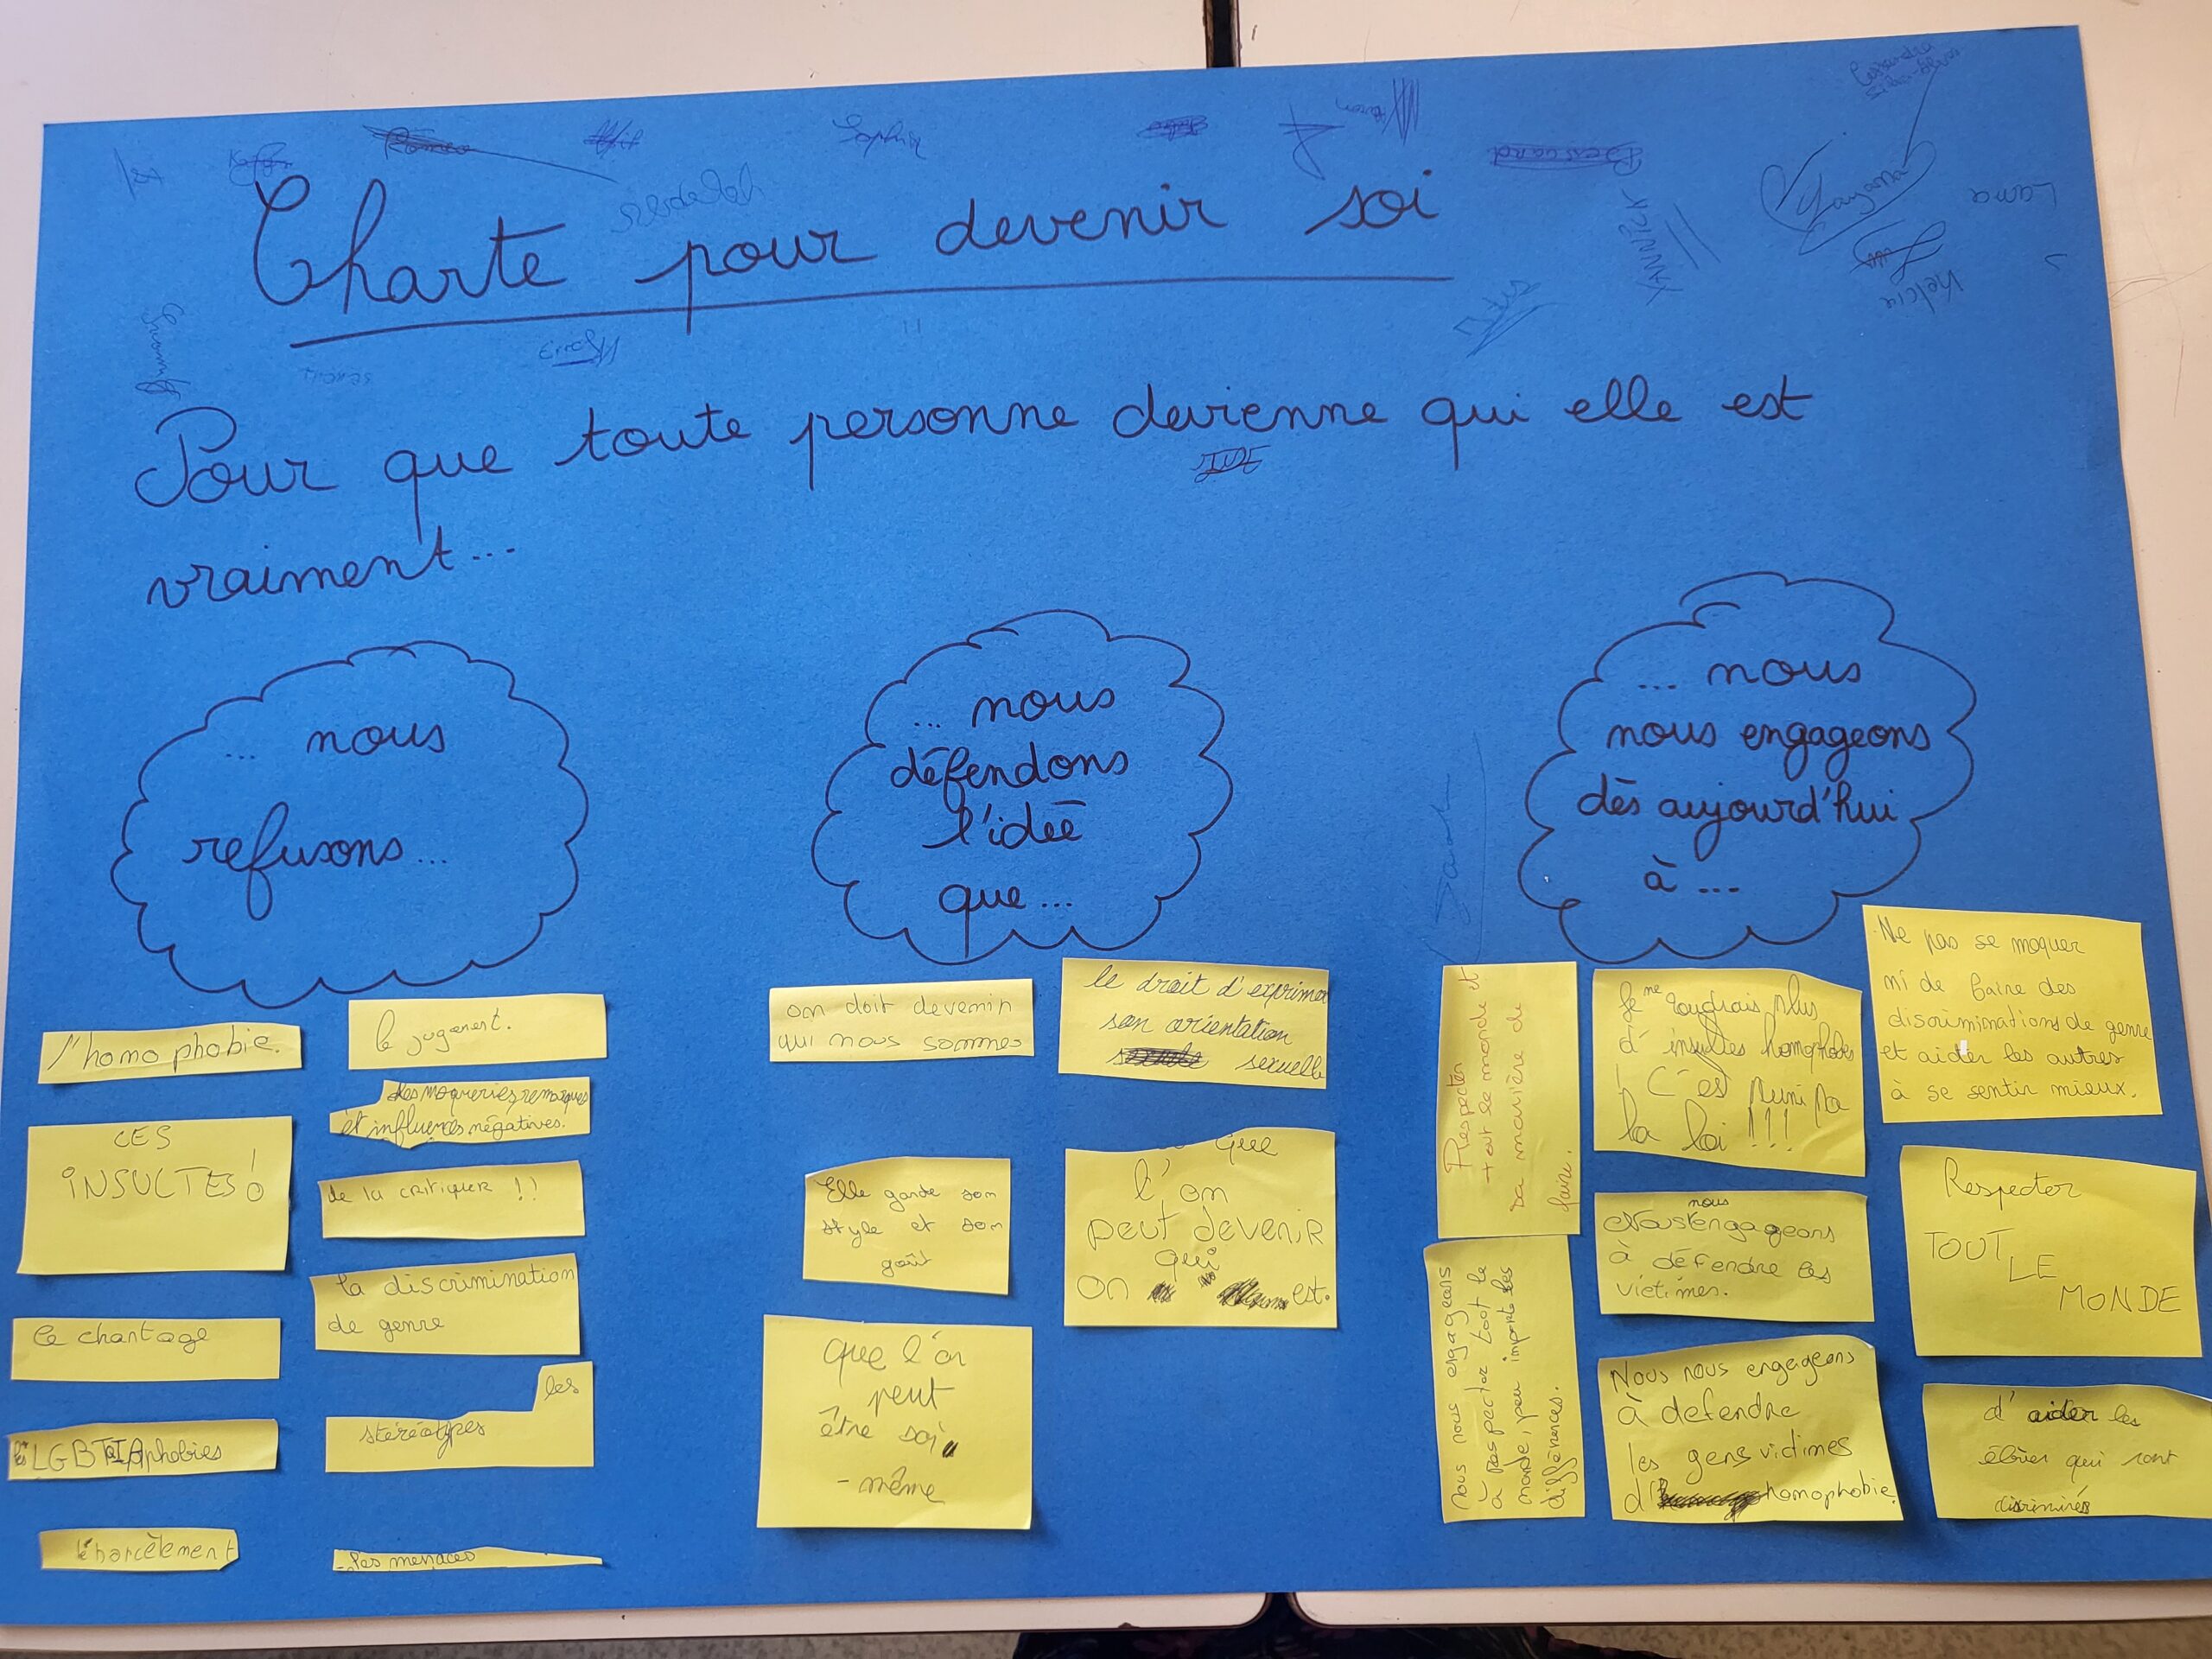 Sophia
Charte pour devenir soi
YANNICK
Lana
Kelcia
Pour que toute personne devienne qui elle est
vraiment...
... nous
refusons...
l'homophobie.
CES
INSULTES !
le chantage
les LGBTQIAphobies
le harcèlement
le jugement.
des moqueries, remarques
et influences négatives.
de la critiquer !!
la discrimination
de genre
les
stéréotypes
- les menaces
... nous
défendons
l'idée
que...
on doit devenir
qui nous sommes
Elle garde son
style et son
goût
Que l'on
peut
être soi
- même
le droit d'exprimer
son orientation
sexuelle
Que
l'on
peut devenir
qui
on est.
... nous
nous engageons
dès aujourd'hui
à ...
Respecter
tout le monde et
sa manière de
faire.
nous nous engageons
à respecter tout le
monde, peu importe les
différences.
Je ne voudrais plus
d'insultes homophobes
- C'est puni pa
la loi !!!
Nous nous engageons
à défendre les
victimes.
Nous nous engageons
à defendre
les gens victimes
d' homophobie.
Ne pas se moquer
ni de faire des
discriminations de genre
et aider les autres
à se sentir mieux.
Respecter
TOUT
LE
MONDE
d'aider les
élèves qui sont
discriminés